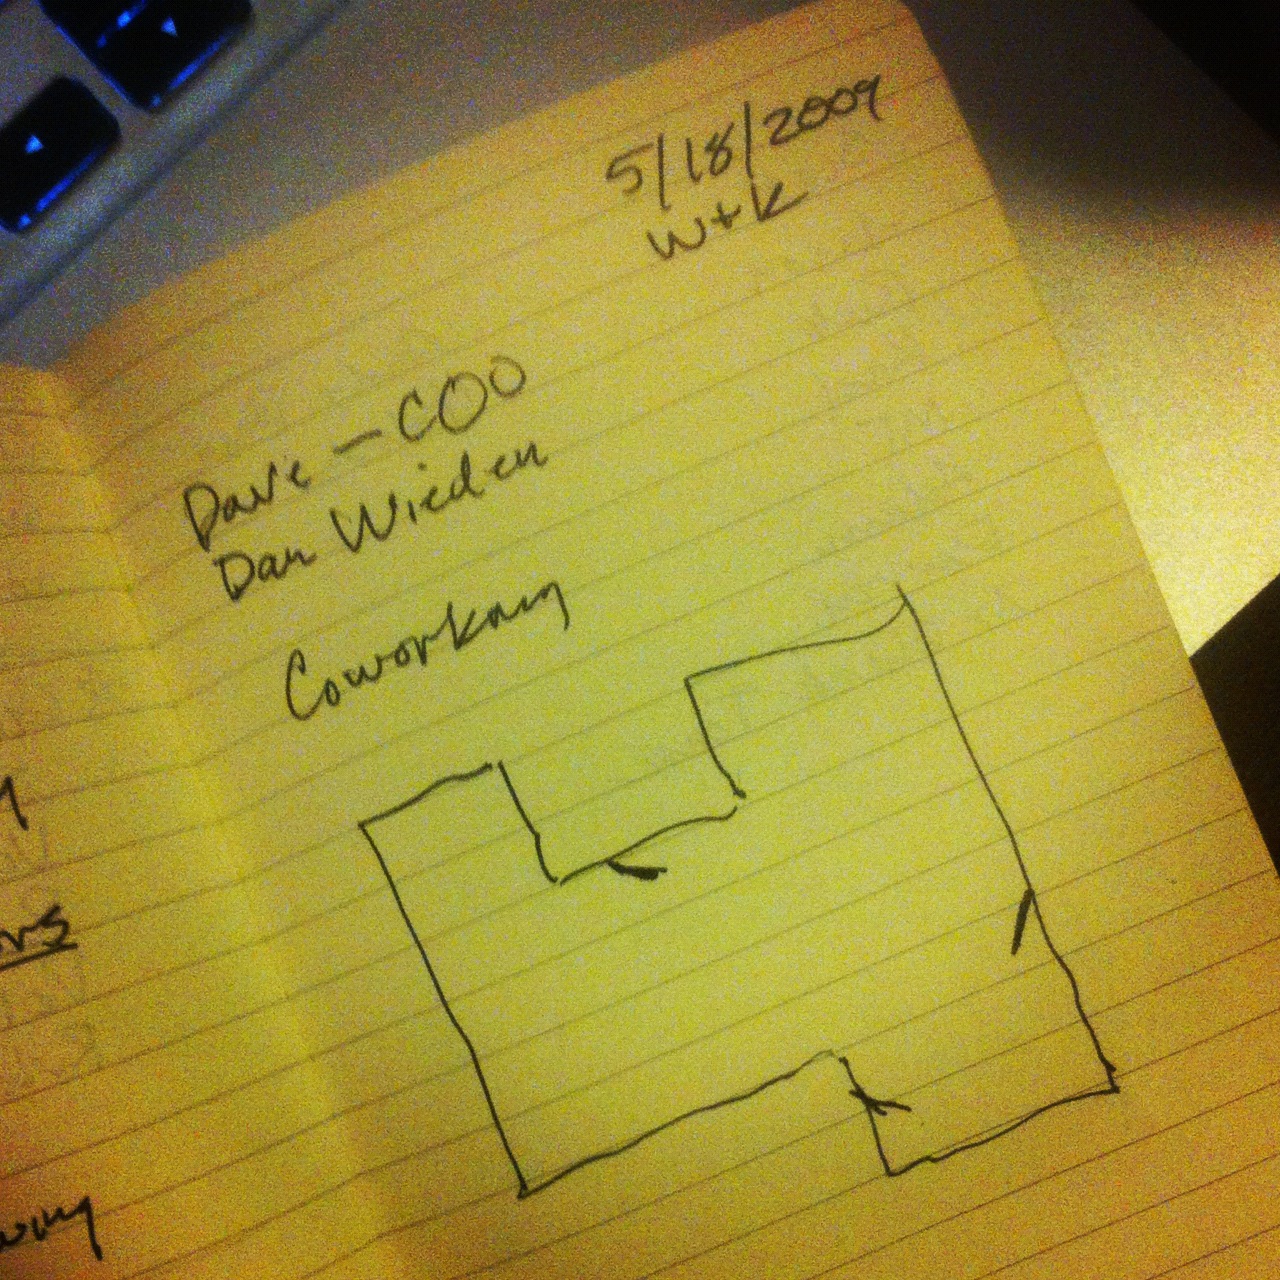 5/18/2009
W+K
Dave — COO
Dan Wieden
Coworking